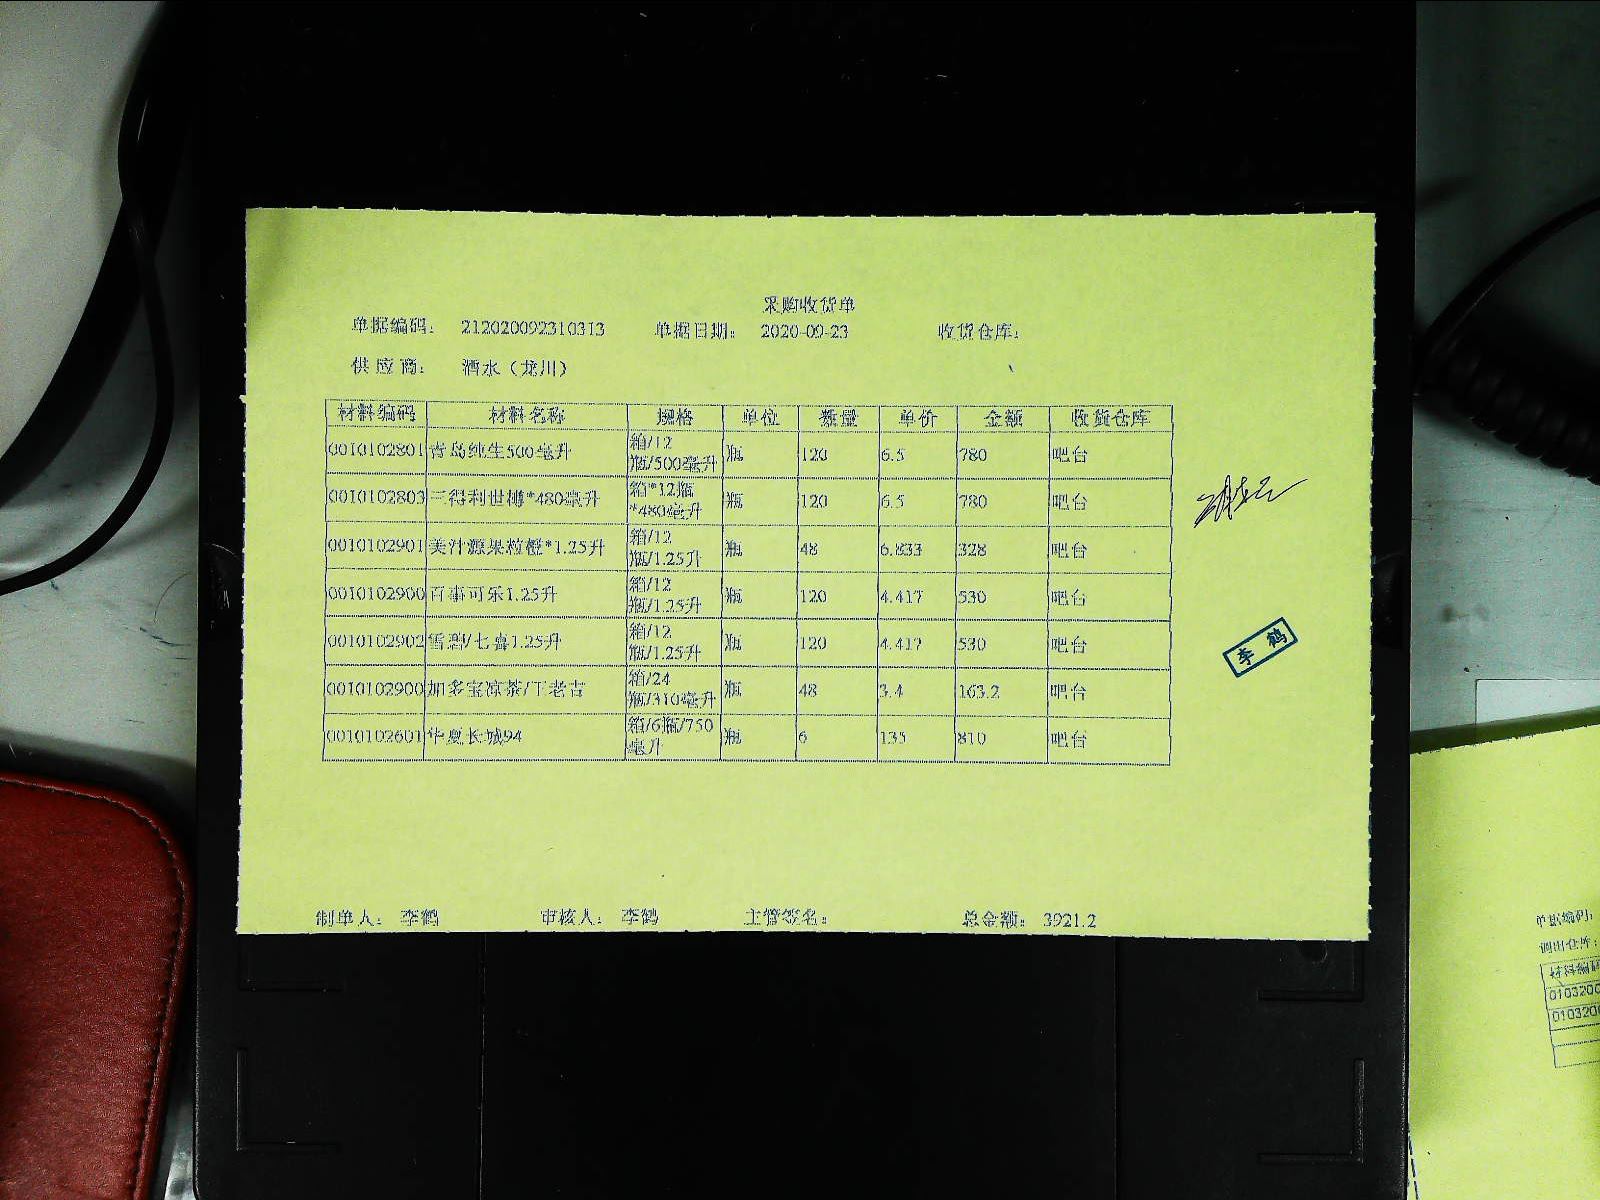 采购收货单
单据编码： 212020092310313 单据日期： 2020-09-23 收货仓库：
供应商： 酒水（龙川）
材料编码 材料名称 规格 单位 数量 单价 金额 收货仓库
0010102801 青岛纯生500毫升 箱/12瓶/500毫升 瓶 120 6.5 780 吧台
0010102803 三得利世樽*480毫升 箱*12瓶*480毫升 瓶 120 6.5 780 吧台
0010102901 美汁源果粒橙*1.25升 箱/12瓶/1.25升 瓶 48 6.833 328 吧台
0010102900 百事可乐1.25升 箱/12瓶/1.25升 瓶 120 4.417 530 吧台
0010102902 雪碧/七喜1.25升 箱/12瓶/1.25升 瓶 120 4.417 530 吧台
0010102900 加多宝凉茶/王老吉 箱/24瓶/310毫升 瓶 48 3.4 163.2 吧台
0010102601 华夏长城94 箱/6瓶/750毫升 瓶 6 135 810 吧台
李鹤
制单人： 李鹤 审核人： 李鹤 主管签名： 总金额： 3921.2
单据编码：
调出仓库：
材料编码
0103200
0103200